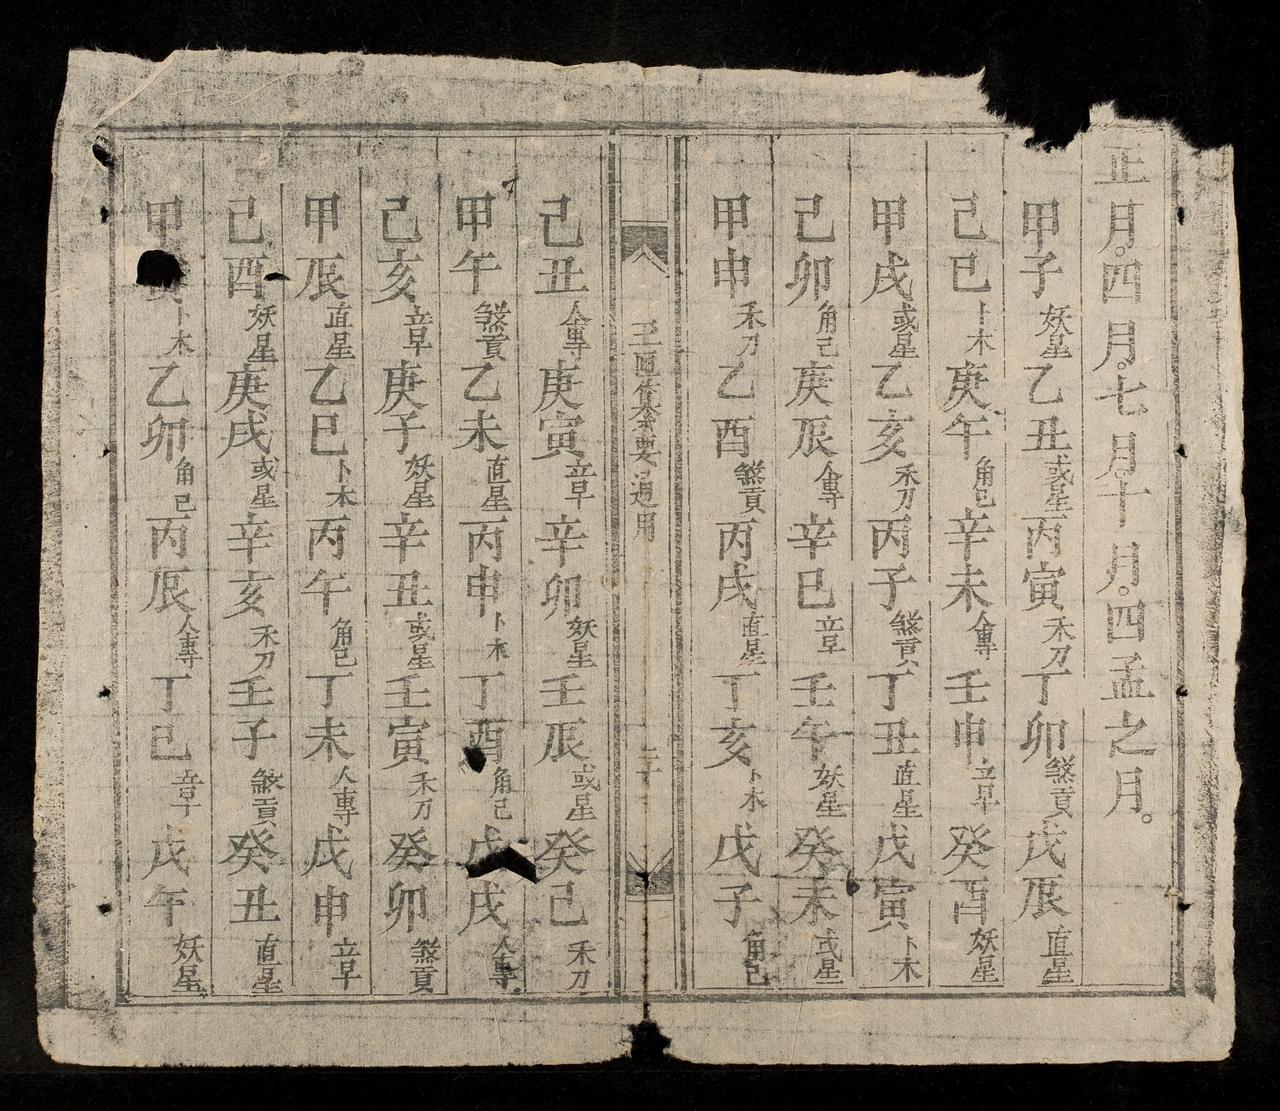 正月。四月。七月。十月。四孟之月。
甲子妖星乙丑或星丙寅禾刀丁卯煞貢戊辰直星
己巳卜木庚午角己辛未人專壬申立早癸酉妖星
甲戌或星乙亥禾刀丙子煞貢丁丑直星戊寅卜木
己卯角己庚辰人專辛巳立早壬午妖星癸未或星
甲申禾刀乙酉煞貢丙戌直星丁亥卜木戊子角己
玉匣纂要通用
己丑人專庚寅立早辛卯妖星壬辰或星癸己禾刀
甲午煞貢乙未直星丙申卜木丁酉角己戊戌人專
己亥立早庚子妖星辛丑或星壬寅禾刀癸卯煞貢
甲辰直星乙巳卜木丙午角己丁未人專戊申立早
己酉妖星庚戌或星辛亥禾刀壬子煞貢癸丑直星
甲寅卜木乙卯角己丙辰人專丁己立早戊午妖星